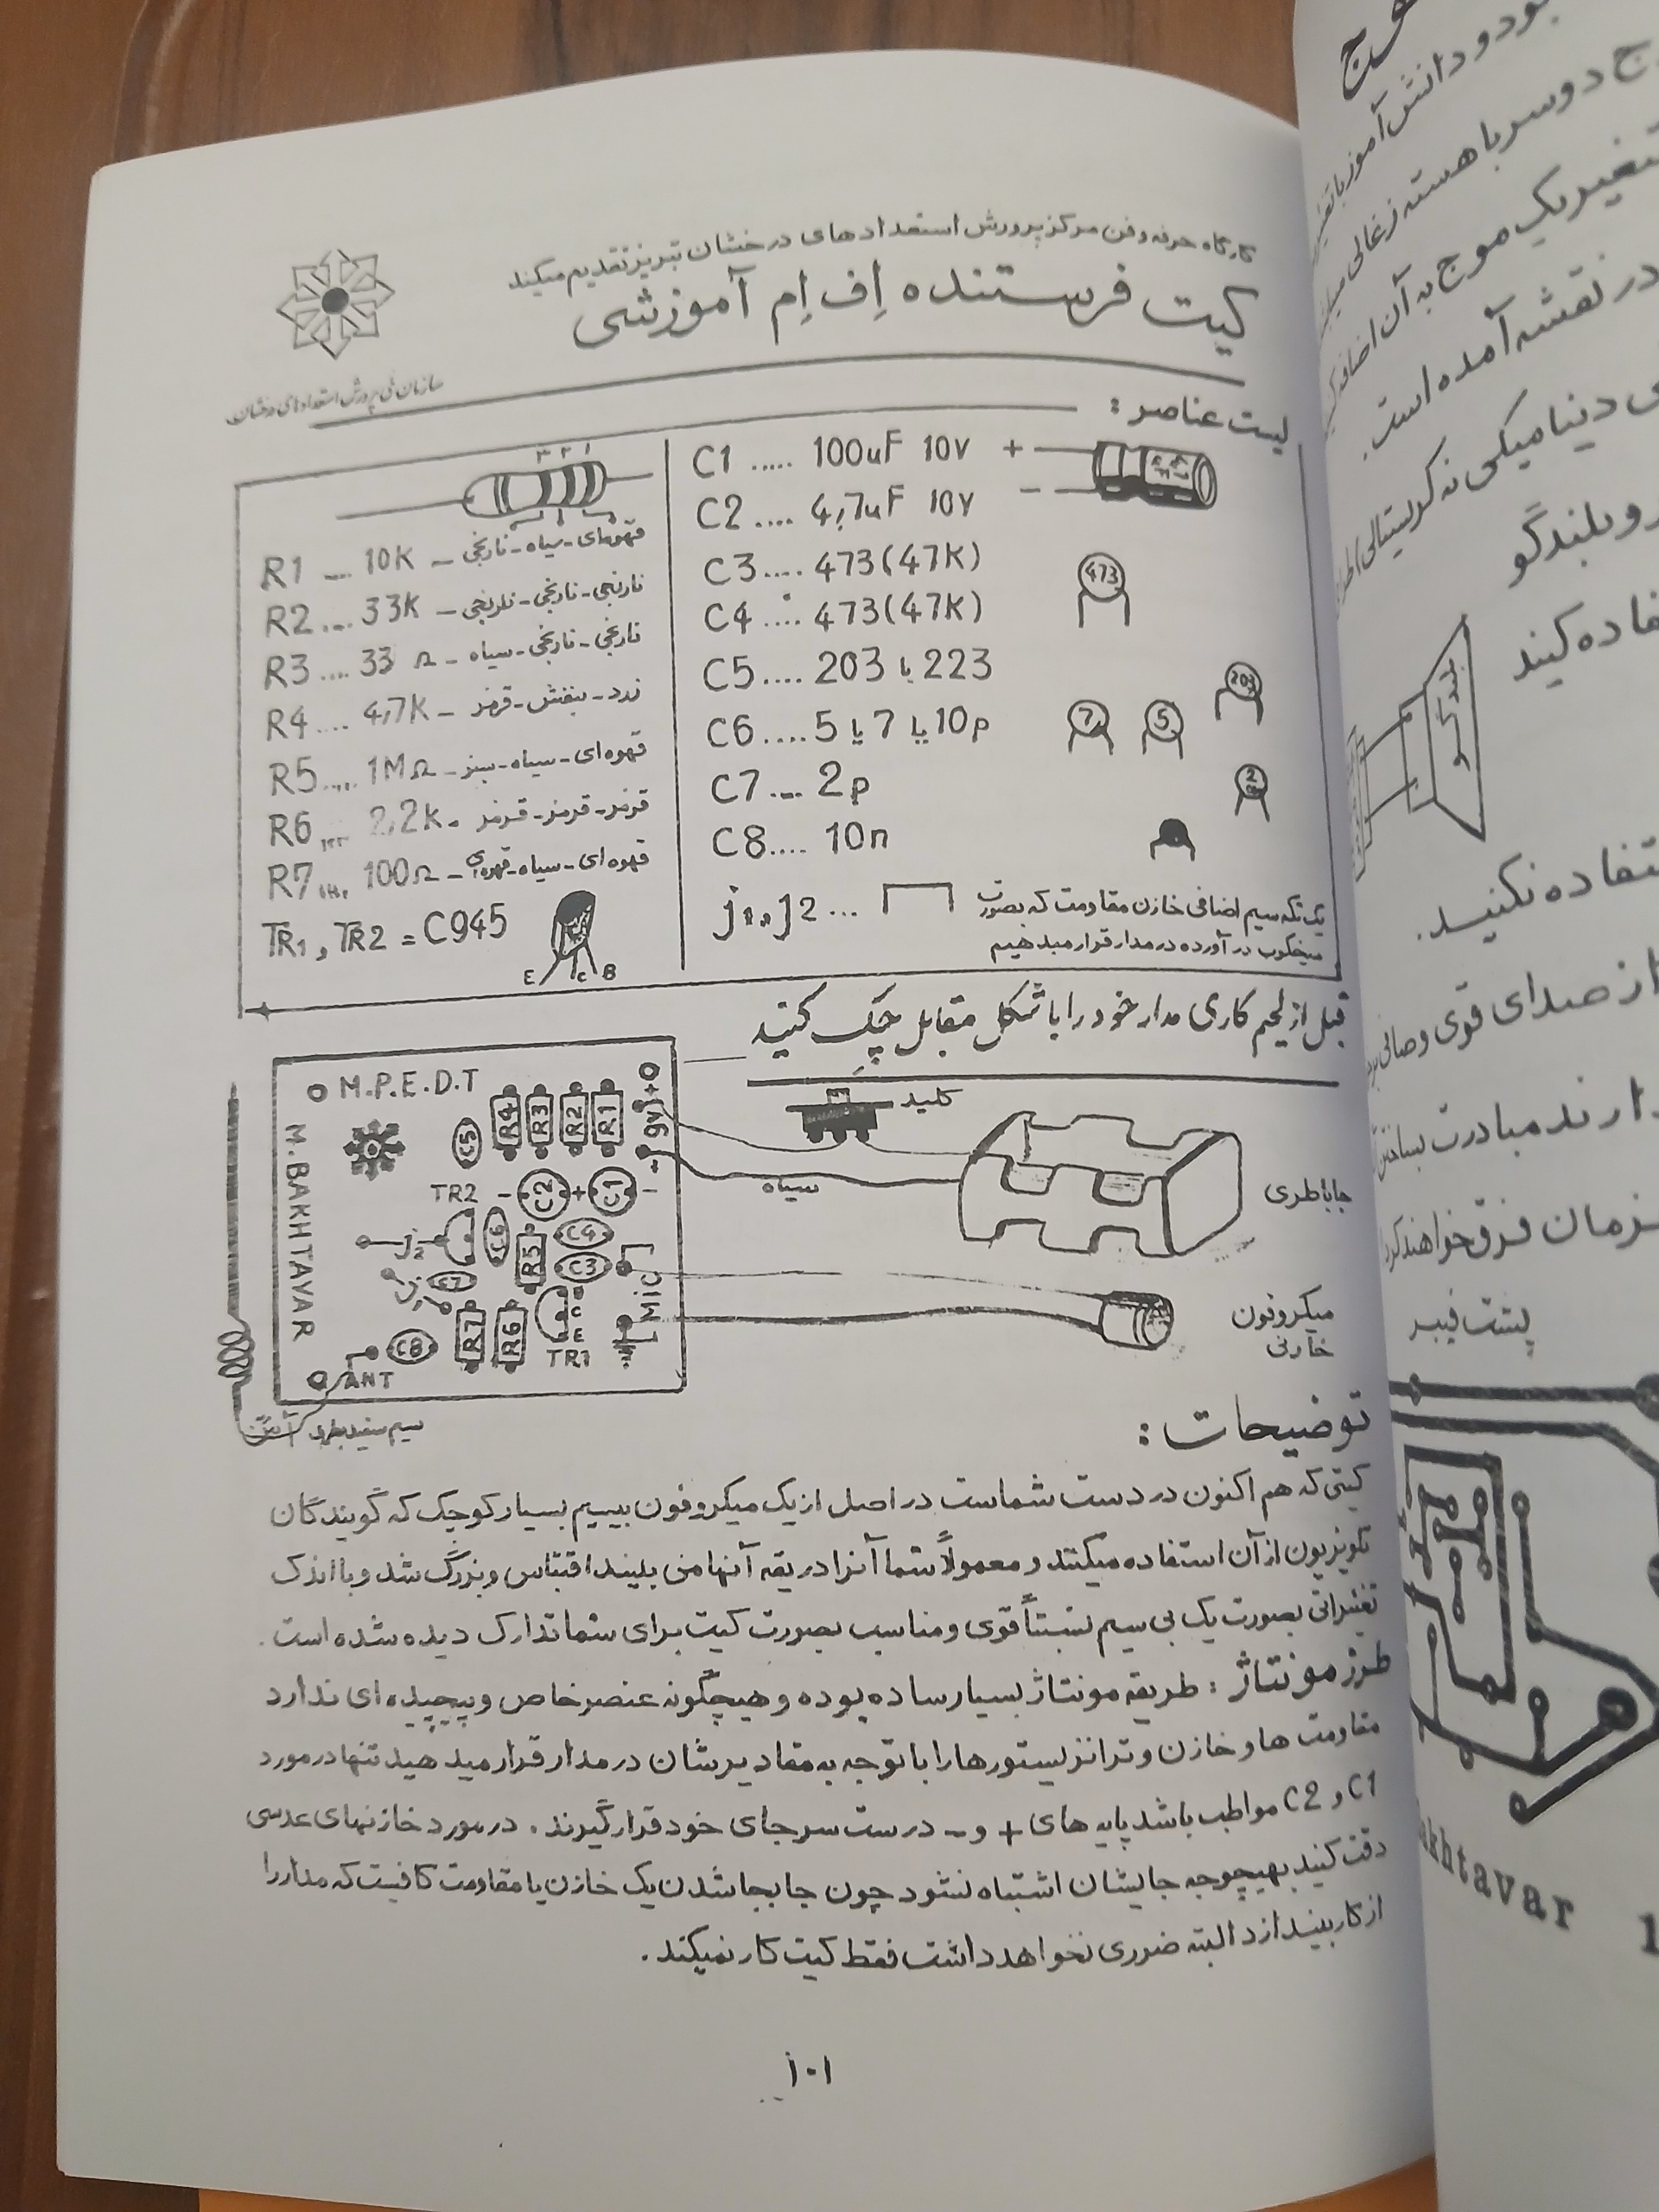 کارگاه حرفه و فن مرکز پرورش استعدادهای درخشان تبریز تقدیم میکند
کیت فرستنده اِف اِم آموزشی
سازمان ملی پرورش استعدادهای درخشان
لیست عناصر :
۳ ۲ ۱
R1 .... 10K – قهوه‌ای-سیاه-نارنجی
R2 .... 33K – نارنجی-نارنجی-نارنجی
R3 .... 33 Ω – نارنجی-نارنجی-سیاه
R4 .... 4,7K – زرد-بنفش-قرمز
R5 .... 1MΩ – قهوه‌ای-سیاه-سبز
R6 .... 2,2K – قرمز-قرمز-قرمز
R7 .... 100Ω – قهوه‌ای-سیاه-قهوه‌ای
TR1 , TR2 = C945
E C B
C1 ..... 100uF 10V + –
C2 .... 4,7uF 10V
C3 .... 473(47K)
473
C4 .... 473(47K)
C5 .... 203 یا 223
203
C6 .... 5 یا 7 یا 10p
7 5
C7 .... 2p
2
C8 .... 10n
j1, j2 ... یک تکه سیم اضافی خازن مقاومت که بصورت
میخکوب در آورده در مدار قرار میدهیم
قبل از لحیم کاری مدار خود را با شکل مقابل چک کنید
M.P.E.D.T
M. BAKHTAVAR
R4 R3 R2 R1
- 9V +
C5
TR2
- C2 + C1 -
j2
C6
R5
C4
C3
j1
C7
MIC
C8
R7
R6
C
E
TR1
ANT
کلید
سیاه
جاباطری
میکروفون
خازنی
سیم سفید بطرف آنتن
توضیحات :
کیتی که هم اکنون در دست شماست در اصل از یک میکروفون بیسیم بسیار کوچک که گویندگان
تلویزیون از آن استفاده میکنند و معمولاً شما آنرا در یقه آنها می بینید اقتباس و بزرگ شد و با اندک
تغییراتی بصورت یک بی سیم نسبتاً قوی و مناسب بصورت کیت برای شما تدارک دیده شده است .
طرز مونتاژ : طریقه مونتاژ بسیار ساده بوده و هیچگونه عنصر خاص و پیچیده ای ندارد
مقاومت ها و خازن و ترانزیستورها را با توجه به مقادیرشان در مدار قرار میدهید تنها در مورد
C1 و C2 مواظب باشد پایه های + و - درست سر جای خود قرار گیرند . در مورد خازنهای عدسی
دقت کنید بهیچوجه جایشان اشتباه نشود چون جابجا شدن یک خازن یا مقاومت کافیست که مدار را
از کار بیندازد البته ضرری نخواهد داشت فقط کیت کار نمیکند .
۱۰۱
موج
بود و دانش آموز با
ج دو سر با هسته زغالی
تغییر یک موج به آن اضافه
در نقشه آمده است .
ی دینامیکی نه کریستالی
رو بلندگو
فاده کنید
بلندگو
ستفاده نکنید .
از صدای قوی و صافی
دارند مبادرت بساختن
زمان فرق خواهند کرد
پشت فیبر
akhtavar 1